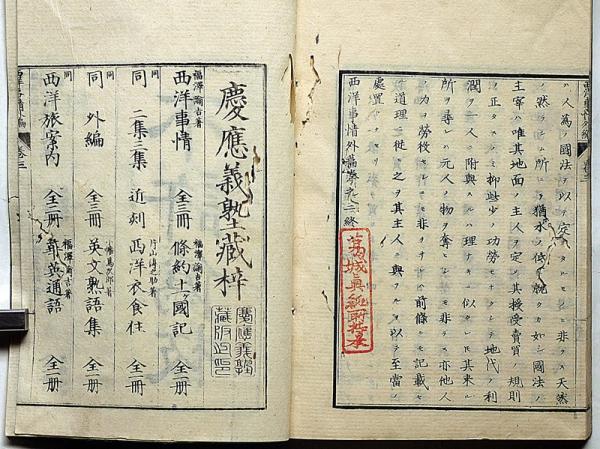 ハ人爲ノ國法ヲ以テ定メタルモノニ非ラス天然
ノ然ラシムル所ニテ猶水ノ低キニ就クカ如シ國法ノ
主宰ハ唯其地面ノ主人ヲ定メ其授受賣買ノ規則
ヲ正タスノミ抑些少ノ功勞モナクシテ地代ノ利
潤ヲ人ニ附與スルハ理ナキニ似タレ𪜈其來ル
所ヲ尋レハ元人ノ物ヲ奪ヒシニモ非ラス亦他人
ノ力ヲ勞役セシニモ非ラサレハ前條ニモ記載セ
シ道理ニ從ヒ之ヲ其主人ニ與フルヲ以テ至當ノ
處置トス
西洋事情外編卷之三終
慶應義塾藏梓
福澤諭吉著
西洋事情 全三冊
同 二集三集 近刻
同 外編 全三冊
同
西洋旅案内 全二冊
福澤諭吉著
條約十一ヶ國記 全一冊
片山淳之助著
西洋衣食住 全一冊
英文熟語集 全一冊
福澤諭吉著
華英通語 全一冊